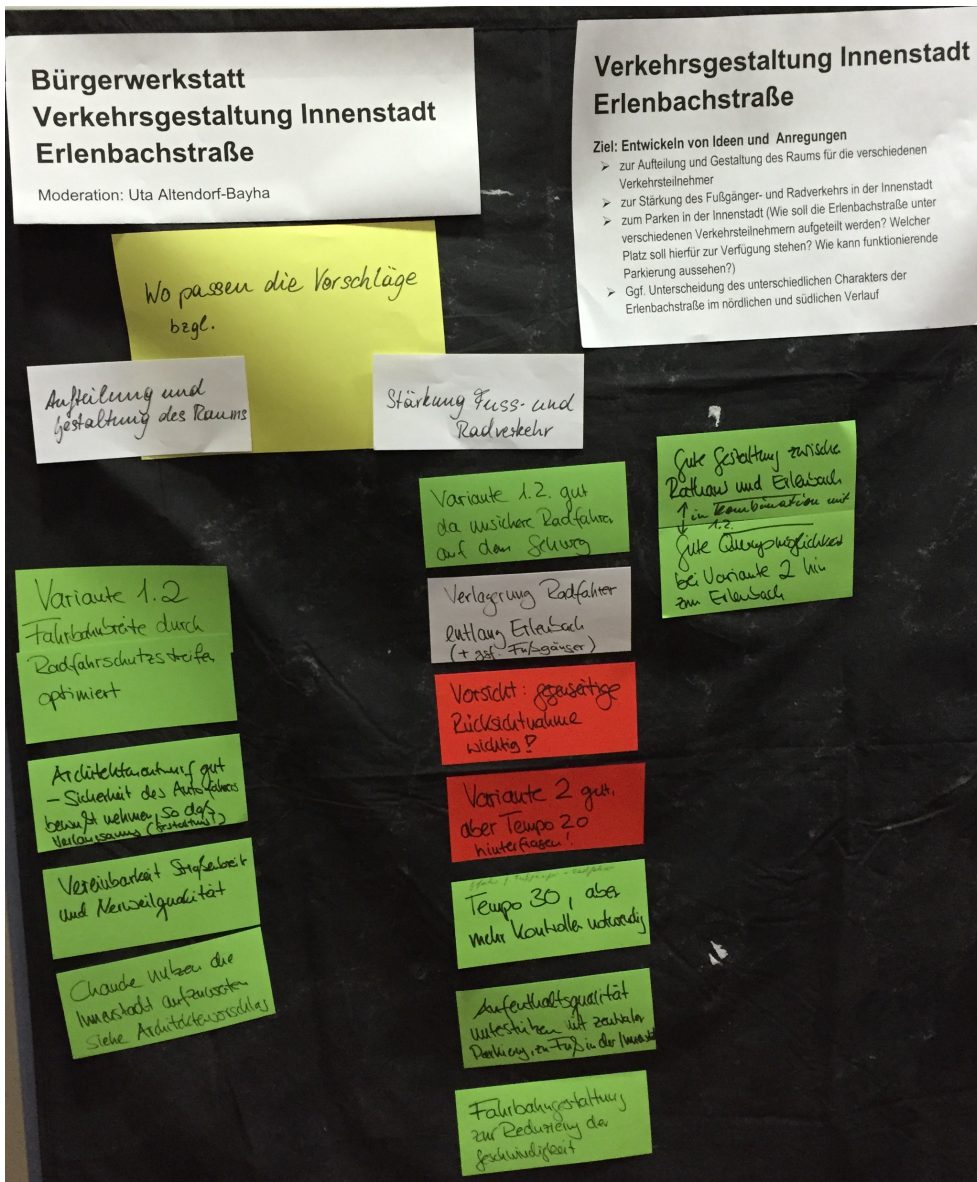 Bürgerwerkstatt
Verkehrsgestaltung Innenstadt
Erlenbachstraße
Moderation: Uta Altendorf-Bayha
Verkehrsgestaltung Innenstadt
Erlenbachstraße
Ziel: Entwickeln von Ideen und Anregungen
➢ zur Aufteilung und Gestaltung des Raums für die verschiedenen
Verkehrsteilnehmer
➢ zur Stärkung des Fußgänger- und Radverkehrs in der Innenstadt
➢ zum Parken in der Innenstadt (Wie soll die Erlenbachstraße unter
verschiedenen Verkehrsteilnehmern aufgeteilt werden? Welcher
Platz soll hierfür zur Verfügung stehen? Wie kann funktionierende
Parkierung aussehen?)
➢ Ggf. Unterscheidung des unterschiedlichen Charakters der
Erlenbachstraße im nördlichen und südlichen Verlauf
Wo passen die Vorschläge
bzgl.
Aufteilung und
Gestaltung des Raums
Variante 1.2
Fahrbahnbreite durch
Radfahrschutzstreifen
optimiert
Architektenentwurf gut
– Sicherheit des Autofahrers
bewußt nehmen, so daß
Verlangsamung (Gestaltung!)
Vereinbarkeit Straßenbreit
und Verweilqualität
Chance nutzen die
Innenstadt aufzuwerten
siehe Architektenvorschlag
Stärkung Fuss- und
Radverkehr
Variante 1.2. gut
da unsichere Radfahrer
auf dem
Verlagerung Radfahrer
entlang Erlenbach
(+ ggf. Fußgänger)
Vorsicht: gegenseitige
Rücksichtnahme
wichtig!
Variante 2 gut,
aber Tempo 20
hinterfragen!
Tempo 30, aber
mehr Kontrollen notwendig
Aufenthaltsqualität
unterstützen mit zentraler
Parkierung, zu Fuß in der Innenstadt
Fahrbahngestaltung
zur Reduzierung der
Geschwindigkeit
Gute Gestaltung zwische
Rathaus und Erlenbach
↑ in Kombination mit
↓ 1.2.
Gute Querungsmöglichkeit
bei Variante 2 hin
zum Erlenbach